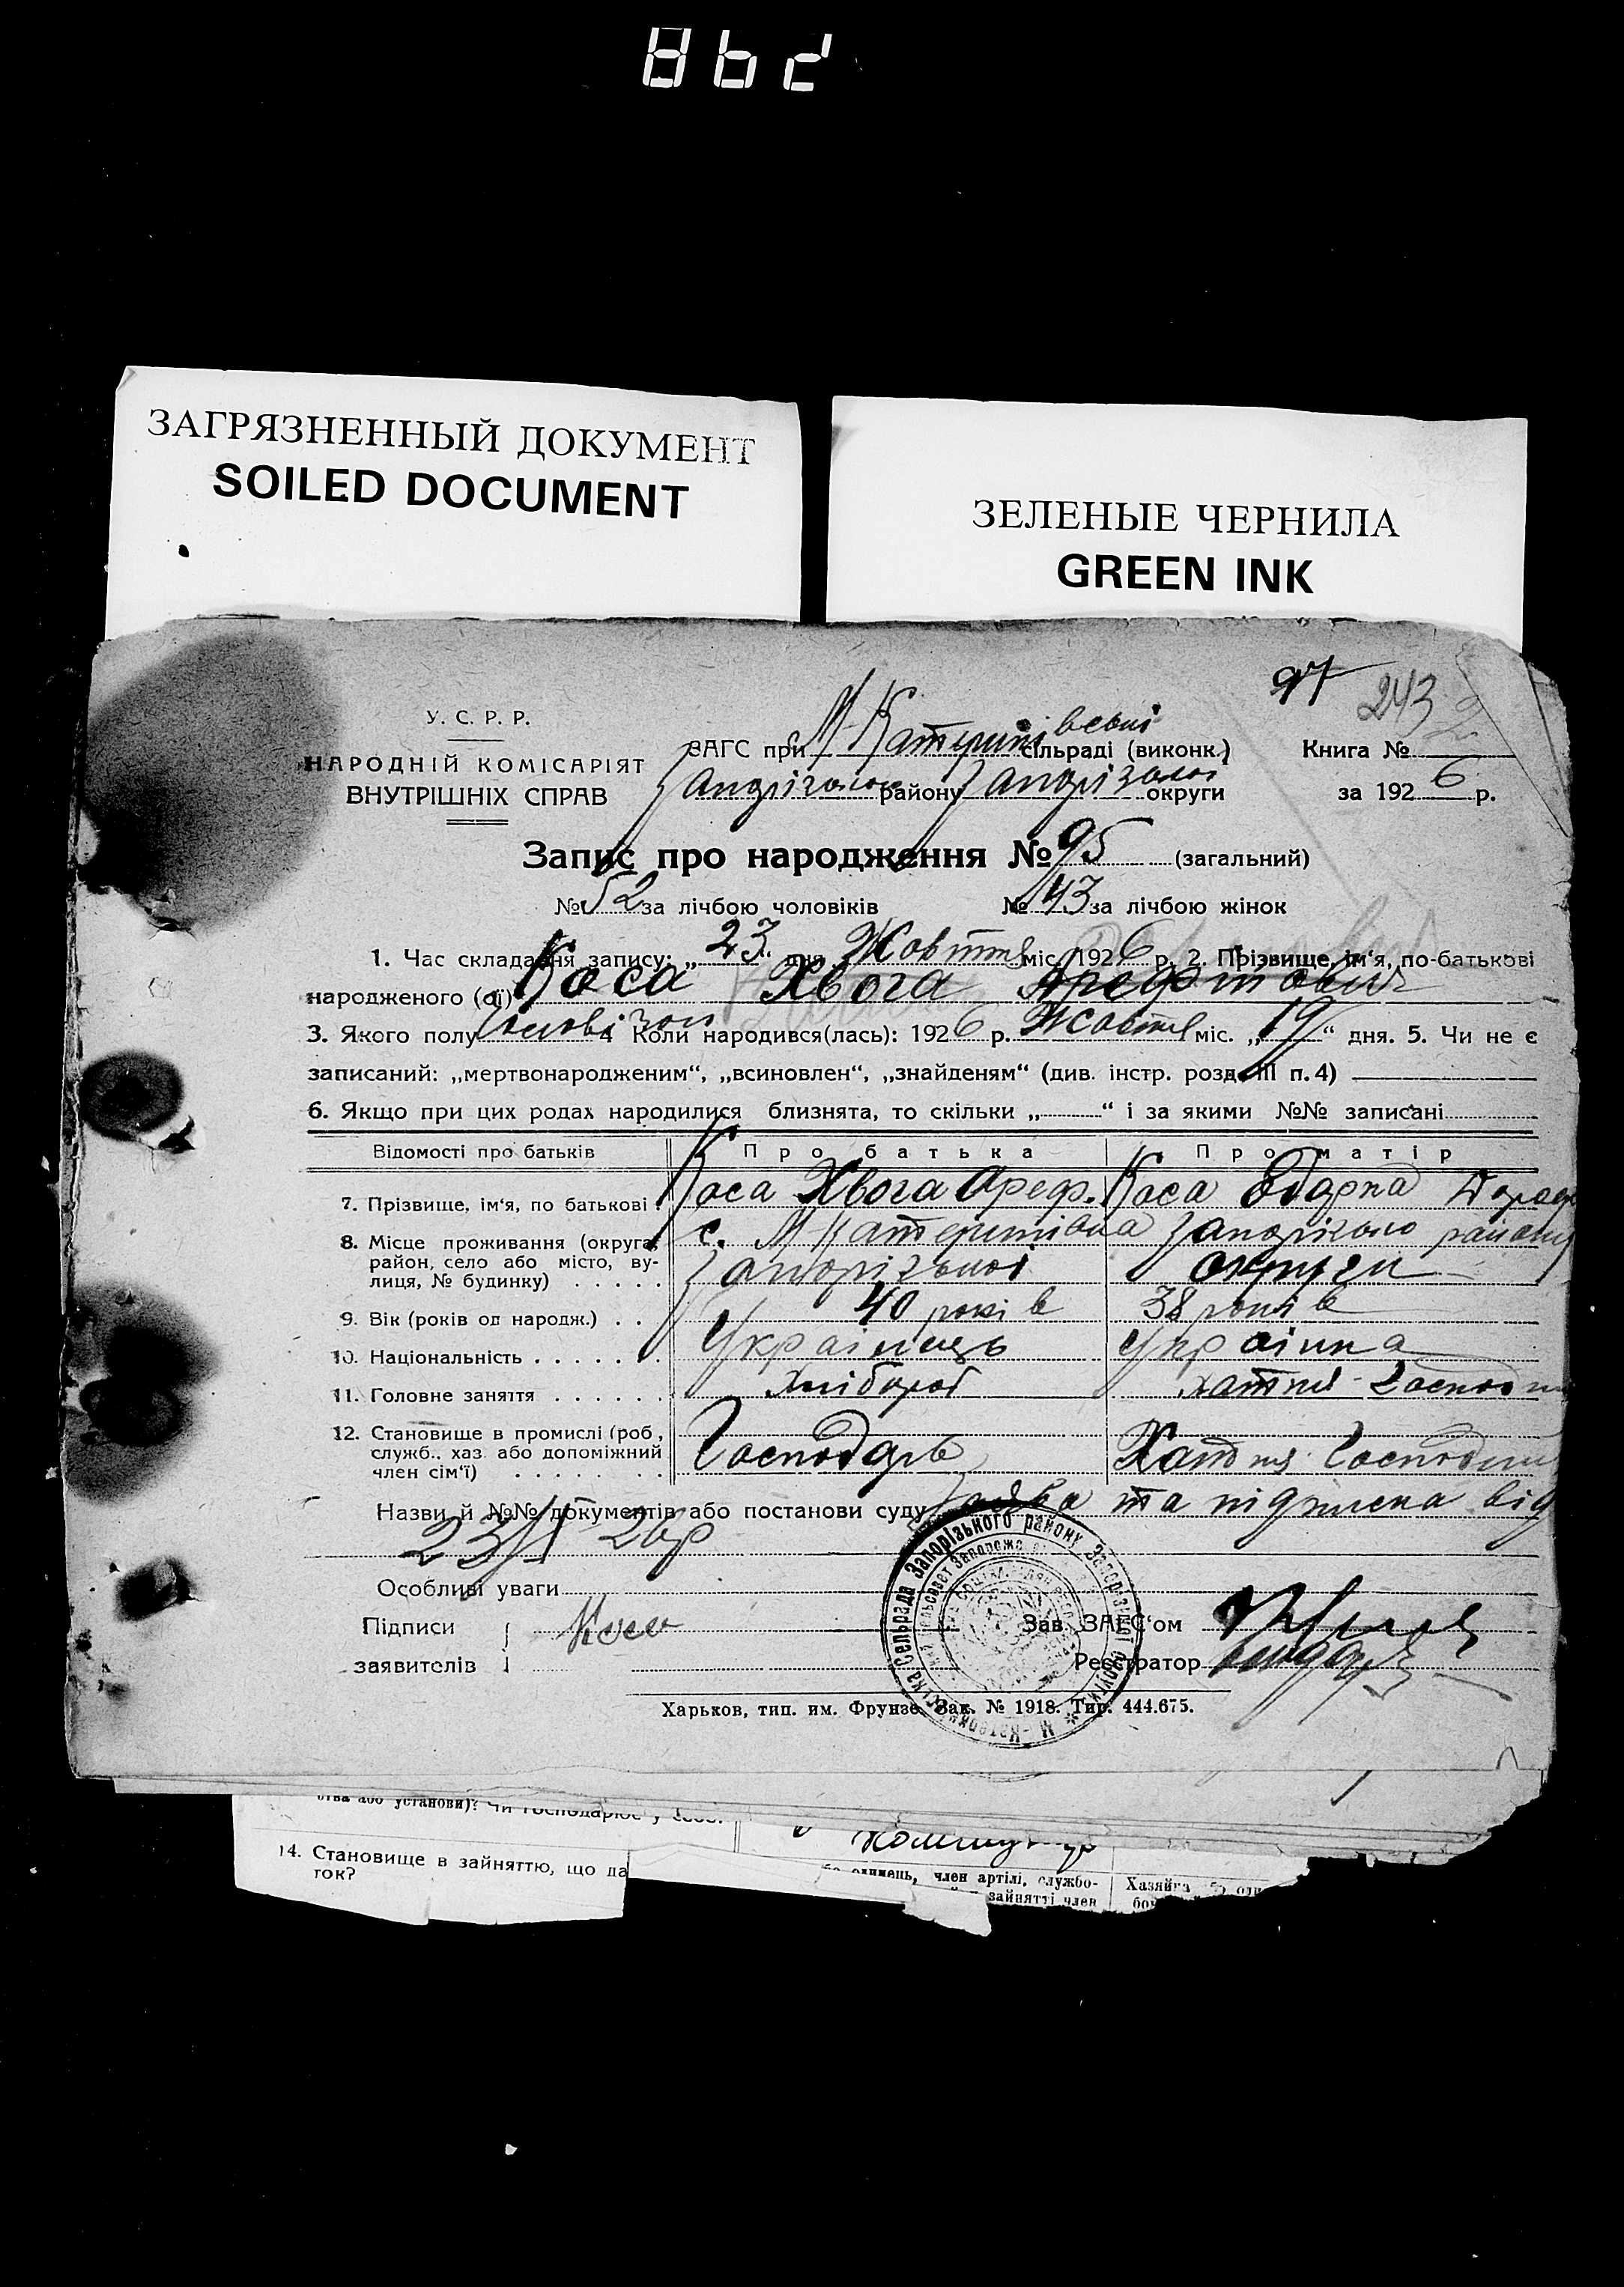 ЗАГРЯЗНЕННЫЙ ДОКУМЕНТ
SOILED DOCUMENT
ЗЕЛЕНЫЕ ЧЕРНИЛА
GREEN INK
97 243
У. С. Р. Р.
НАРОДНІЙ КОМІСАРІЯТ
ВНУТРІШНІХ СПРАВ
ЗАГС при М Катеринівській сільраді (виконк.) Книга №
району округи за 1926 р.
Запис про народження № 95 (загальний)
№ 52 за лічбою чоловіків № 43 за лічбою жінок
1. Час складання запису: „23“ дня Жовтня міс. 1926 р. 2. Прізвище, ім‘я, по-батькові
народженого (ої) Коса Хвога
3. Якого полу 4 Коли народився(лась): 1926 р. Жовтня міс. „19“ дня. 5. Чи не є
записаний: „мертвонародженим“, „всиновлен“, „знайденям“ (див. інстр. розд. III п. 4)
6. Якщо при цих родах народилися близнята, то скільки „ “ і за якими №№ записані
Відомості про батьків Про батька Про матір
7. Прізвище, ім‘я, по батькові Коса Хвога Ареф. Коса Одарка
8. Місце проживання (округа, район, село або місто, вулиця, № будинку) с. М Катеринівка району
округи
9. Вік (років од народж.) 40 років 38 років
10. Національність Українець Українка
11. Головне заняття Хлібороб хатня господ
12. Становище в промислі (роб, служб., хаз або допоміжний член сім‘ї) Господарь Хатня Господин
Назви й №№ документів або постанови суду Заява та підписка від
23/X 26р
Особливі уваги
Підписи Коса Зав. ЗАГС‘ом
заявителів Реєстратор
Сельрада Запорізького району Запорізької округи
Харьков, тип. им. Фрунзе. Зак. № 1918. Тир. 444.675.
14. Становище в зайняттю, що да
ток?
член артілі, службо-
зайнятті член